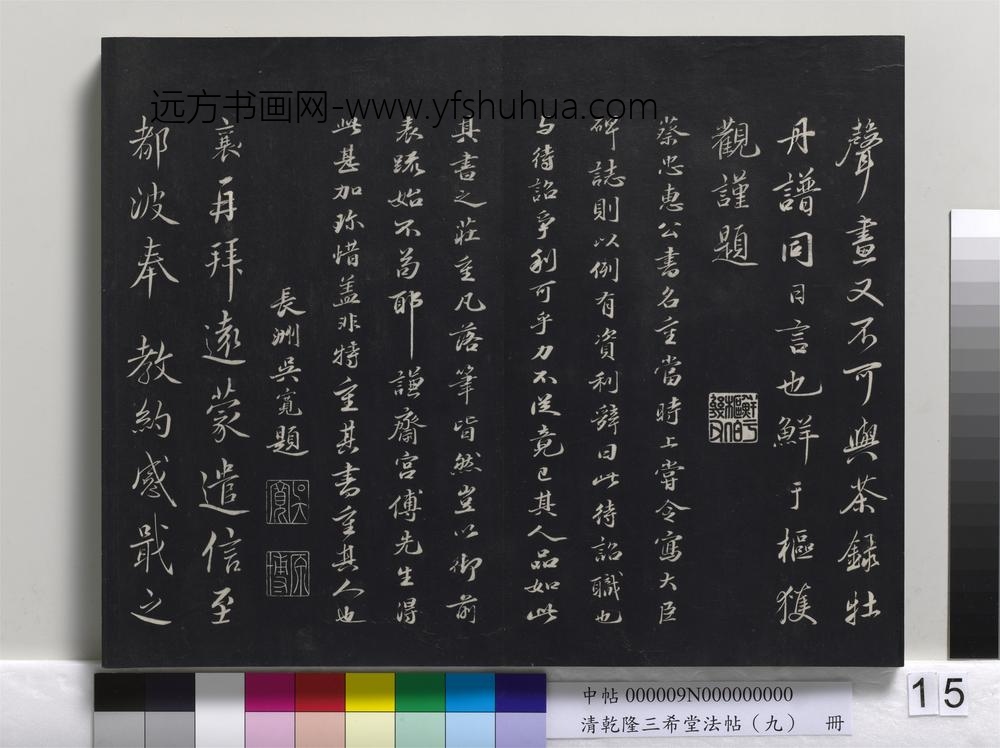 远方书画网-www.yfshuhua.com
聲畫又不可與茶錄牡
丹譜同日言也鮮于樞獲
觀謹題
蔡忠惠公書名重當時上嘗令寫大臣
碑誌則以例有資利辭曰此待詔職也
与待詔爭利可乎力不從竟已其人品如此
其書之莊重凡落筆皆然豈以御前
表疏始不苟耶謙齋宮傅先生得
此甚加珎惜盖非特重其書重其人也
長洲吳寬題
吳寬
原博
襄再拜遠蒙遣信至
都波奉教約感戢之
中帖 000009N000000000
清乾隆三希堂法帖（九） 冊
15